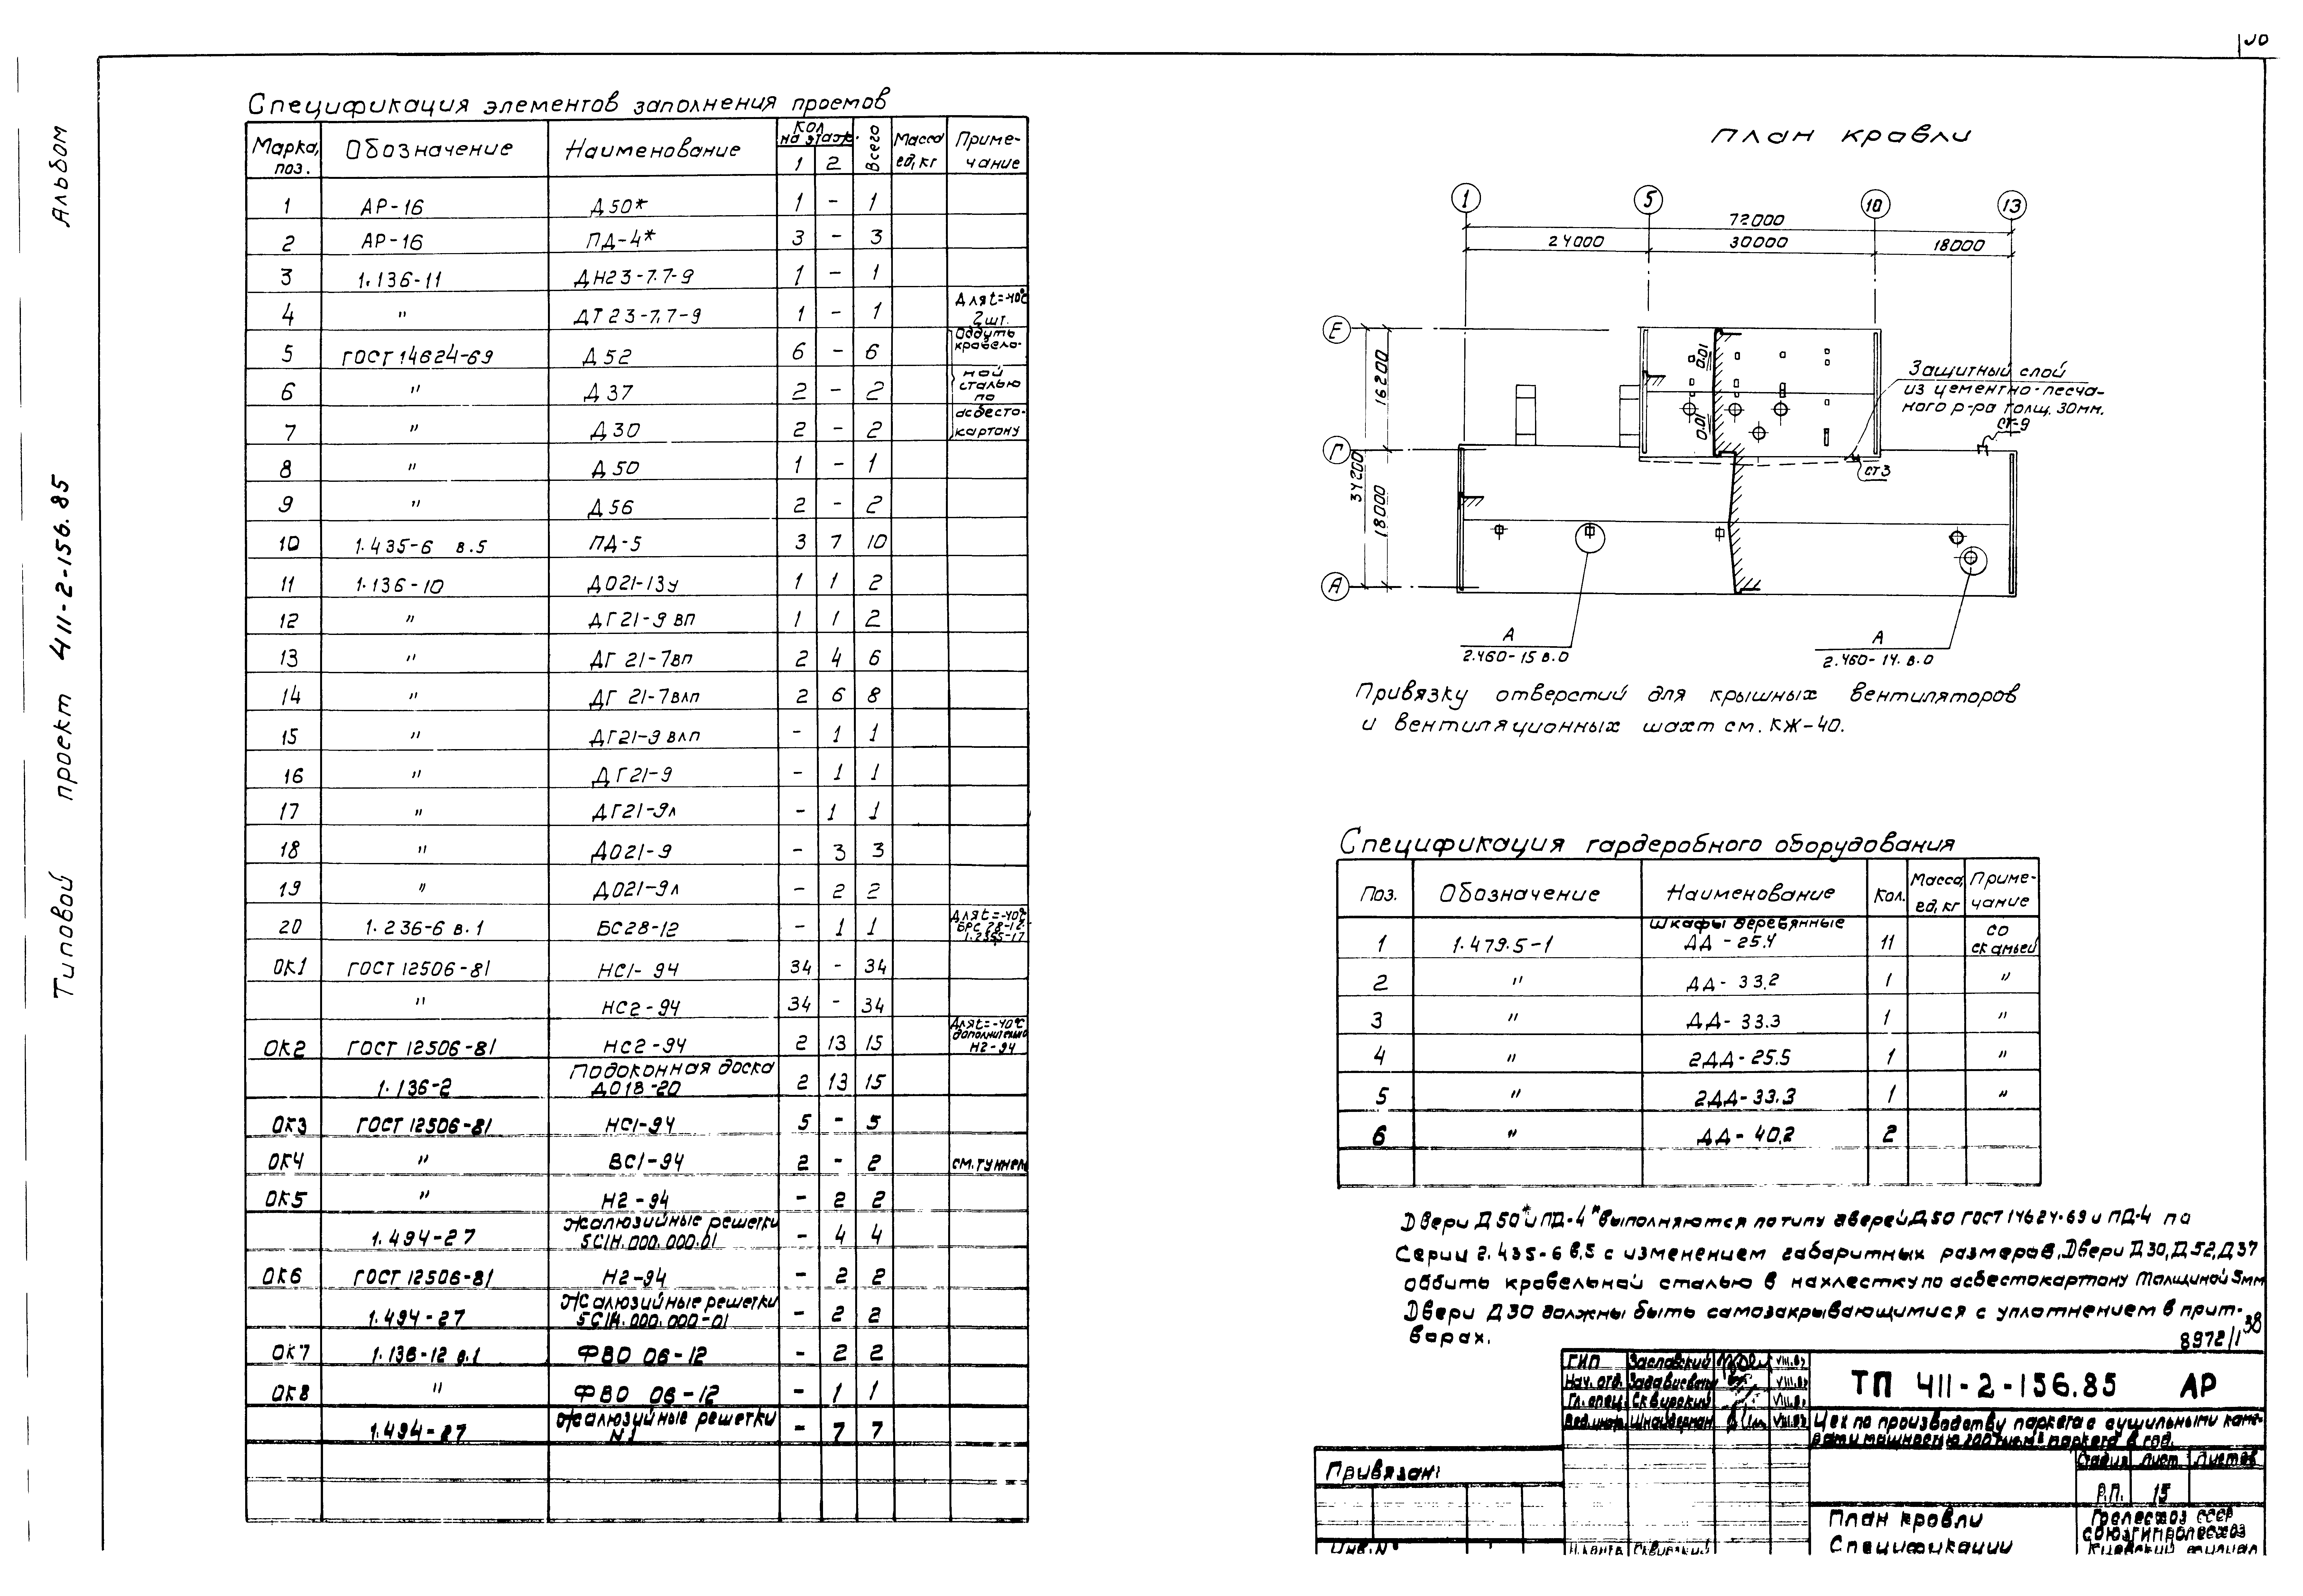 Альбом
Типовой проект 411-2-156.85
Спецификация элементов заполнения проемов
Марка, поз. Обозначение Наименование Кол на этаж. 1 2 Всего Масса ед, кг Приме-чание
1 АР-16 Д50* 1 - 1
2 АР-16 ПД-4* 3 - 3
3 1.136-11 ДН23-7.7-9 1 - 1
4 " ДТ23-7.7-9 1 - 1 Для t=-40°С 2шт.
5 ГОСТ 14624-69 Д52 6 - 6 Оддить кровело-
6 " Д37 2 - 2 ной сталью по
7 " Д30 2 - 2 асбесто-картону
8 " Д50 1 - 1
9 " Д56 2 - 2
10 1.435-6 в.5 ПД-5 3 7 10
11 1.136-10 ДО21-13у 1 1 2
12 " ДГ21-9 вп 1 1 2
13 " ДГ 21-7вп 2 4 6
14 " ДГ 21-7влп 2 6 8
15 " ДГ21-9 влп - 1 1
16 " ДГ21-9 - 1 1
17 " ДГ21-9л - 1 1
18 " ДО21-9 - 3 3
19 " ДО21-9л - 2 2
20 1.236-6 в.1 БС28-12 - 1 1 Для t=-40°С БРС 28-12
ОК1 ГОСТ 12506-81 НС1-94 34 - 34
" НС2-94 34 - 34
ОК2 ГОСТ 12506-81 НС2-94 2 13 15 Для t=-40°С дополнительно Н2-94
1.136-2 Подоконная доска ДО18-20 2 13 15
ОК3 ГОСТ 12506-81 НС1-94 5 - 5
ОК4 " ВС1-94 2 - 2 см.туннель
ОК5 " Н2-94 - 2 2
1.494-27 Жалюзийные решетки 5С1Н.000.000.01 - 4 4
ОК6 ГОСТ 12506-81 Н2-94 - 2 2
1.494-27 Жалюзийные решетки 5С1Н.000.000-01 - 2 2
ОК7 1.136-12 в.1 ФВО 06-12 - 2 2
ОК8 " ФВО 06-12 - 1 1
1.494-27 Жалюзийные решетки N1 - 7 7
План кровли
1 5 10 13
72000
24000 30000 18000
Е
Г
А
16200
34200
18000
0.01
0.01
Защитный слой
из цементно-песча-
ного р-ра толщ. 30мм.
ст-9
ст3
А
2.460-15 в.0
А
2.460-14. в.0
Привязку отверстий для крышных вентиляторов
и вентиляционных шахт см. КЖ-40.
Спецификация гардеробного оборудования
Поз. Обозначение Наименование Кол. Масса, ед, кг Приме-чание
1 1.479.5-1 Шкафы деревянные ДД-25.4 11 со скамьей
2 " ДД-33.2 1 "
3 " ДД-33.3 1 "
4 " 2ДД-25.5 1 "
5 " 2ДД-33.3 1 "
6 " ДД-40.2 2
Двери Д50* и ПД-4* выполняются по типу дверей Д50 ГОСТ 14624-69 и ПД-4 по
Серии 2.435-6 в.5 с изменением габаритных размеров, Двери Д30, Д52, Д37
оббить кровельной сталью в нахлестку по асбестокартону толщиной 5мм
Двери Д30 должны быть самозакрывающимися с уплотнением в прит-
ворах.
8972/1 38
ГИП Заславский VIII.85
Нач. отд.
Гл. спец. Сквирский
Вед. инж. Шнайдерман
ТП 411-2-156.85 АР
Цех по производству паркета с сушильными каме-
рами мощностью 200 тыс.м² паркета в год.
Стадия Лист Листов
Р.П. 15
Привязан:
Инв.N°
Н.контр Сквирский
План кровли
Спецификации
Гослесхоз СССР
Союзгипролесхоз
Киевский филиал